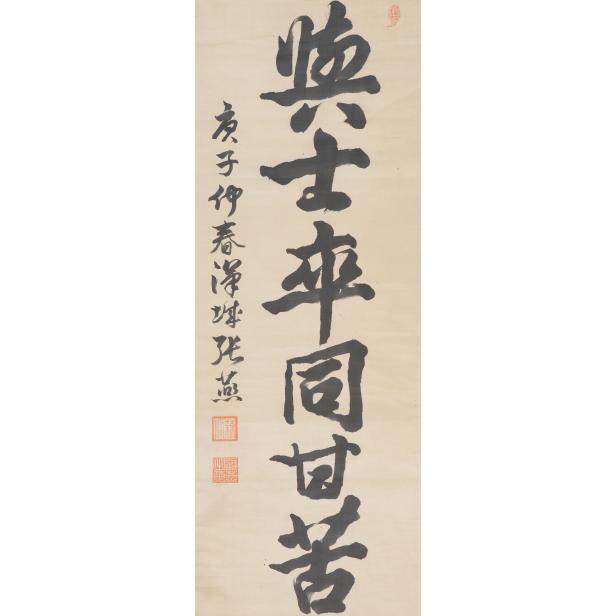 與士卒同甘苦
庚子仲春漢城張燕